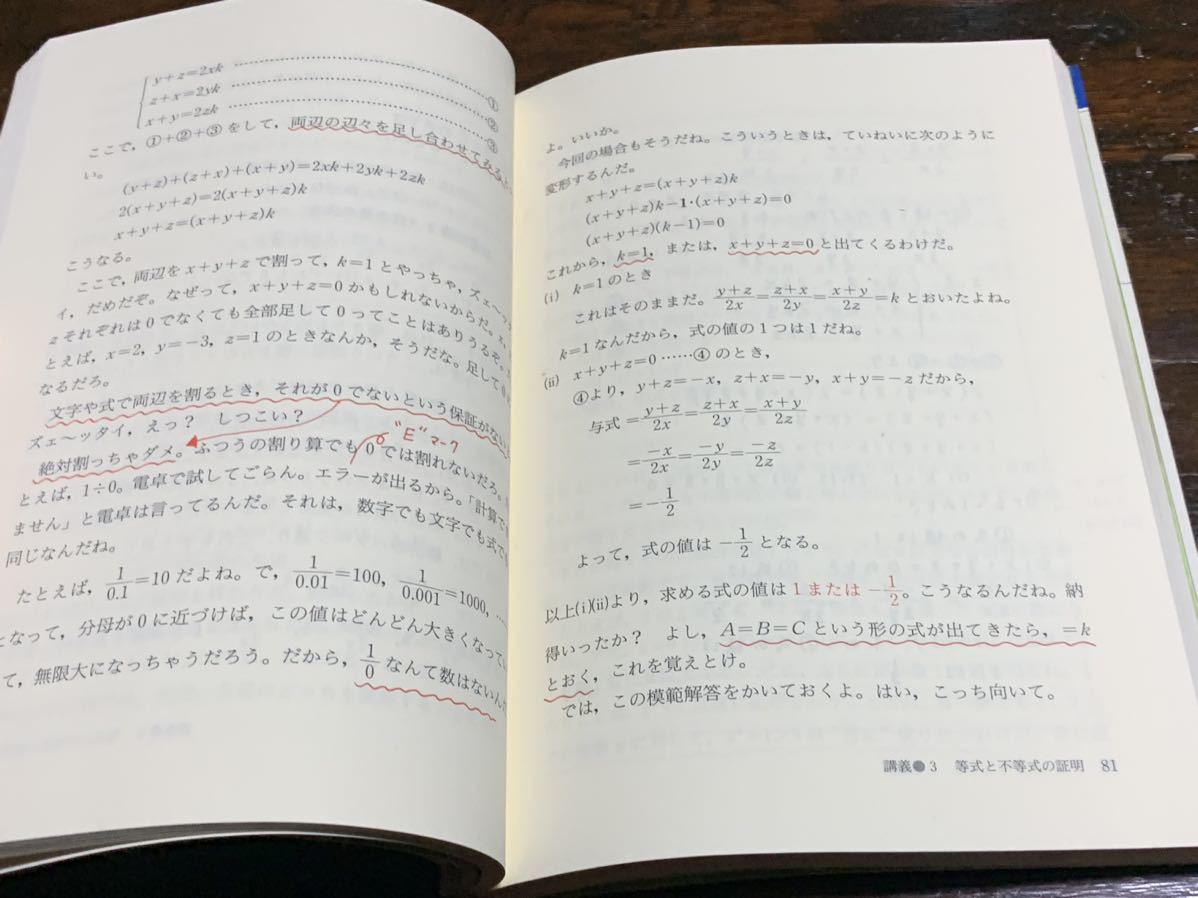 y+z=2xk ……………①
z+x=2yk ……………②
x+y=2zk ……………③
ここで，①+②+③をして，両辺の辺々を足し合わせてみる
い。
(y+z)+(z+x)+(x+y)=2xk+2yk+2zk
2(x+y+z)=2(x+y+z)k
x+y+z=(x+y+z)k
こうなる。
ここで，両辺をx+y+zで割って，k=1とやっちゃ，ズェ〜ッタ
イ，だめだぞ。なぜって，x+y+z=0かもしれないからだ。x,
zそれぞれは0でなくても全部足して0ってことはありうるぞ。
とえば，x=2，y=−3，z=1のときなんか，そうだな。足して0
なるだろ。
文字や式で両辺を割るとき，それが0でないという保証がない
ズェ〜ッタイ，えっ？ しつこい？
"E"マーク
絶対割っちゃダメ。ふつうの割り算でも0では割れないだろ。
とえば，1÷0。電卓で試してごらん。エラーが出るから。「計算で
ません」と電卓は言ってるんだ。それは，数字でも文字でも式で
同じなんだね。
たとえば，1/0.1=10だよね。で，1/0.01=100，1/0.001=1000，…
となって，分母が0に近づけば，この値はどんどん大きくなってい
て，無限大になっちゃうだろう。だから，1/0なんて数はないんだ
よ。いいか。
今回の場合もそうだね。こういうときは，ていねいに次のように
変形するんだ。
x+y+z=(x+y+z)k
(x+y+z)k−1・(x+y+z)=0
(x+y+z)(k−1)=0
これから，k=1，または，x+y+z=0と出てくるわけだ。
(i) k=1のとき
これはそのままだ。(y+z)/2x=(z+x)/2y=(x+y)/2z=kとおいたよね。
k=1なんだから，式の値の1つは1だね。
(ii) x+y+z=0……④のとき，
④より，y+z=−x，z+x=−y，x+y=−zだから，
与式=(y+z)/2x=(z+x)/2y=(x+y)/2z
=−x/2x=−y/2y=−z/2z
=−1/2
よって，式の値は−1/2となる。
以上(i)(ii)より，求める式の値は1または−1/2。こうなるんだね。納
得いったか？ よし，A=B=Cという形の式が出てきたら，=k
とおく，これを覚えとけ。
では，この模範解答をかいておくよ。はい，こっち向いて。
講義●3 等式と不等式の証明 81